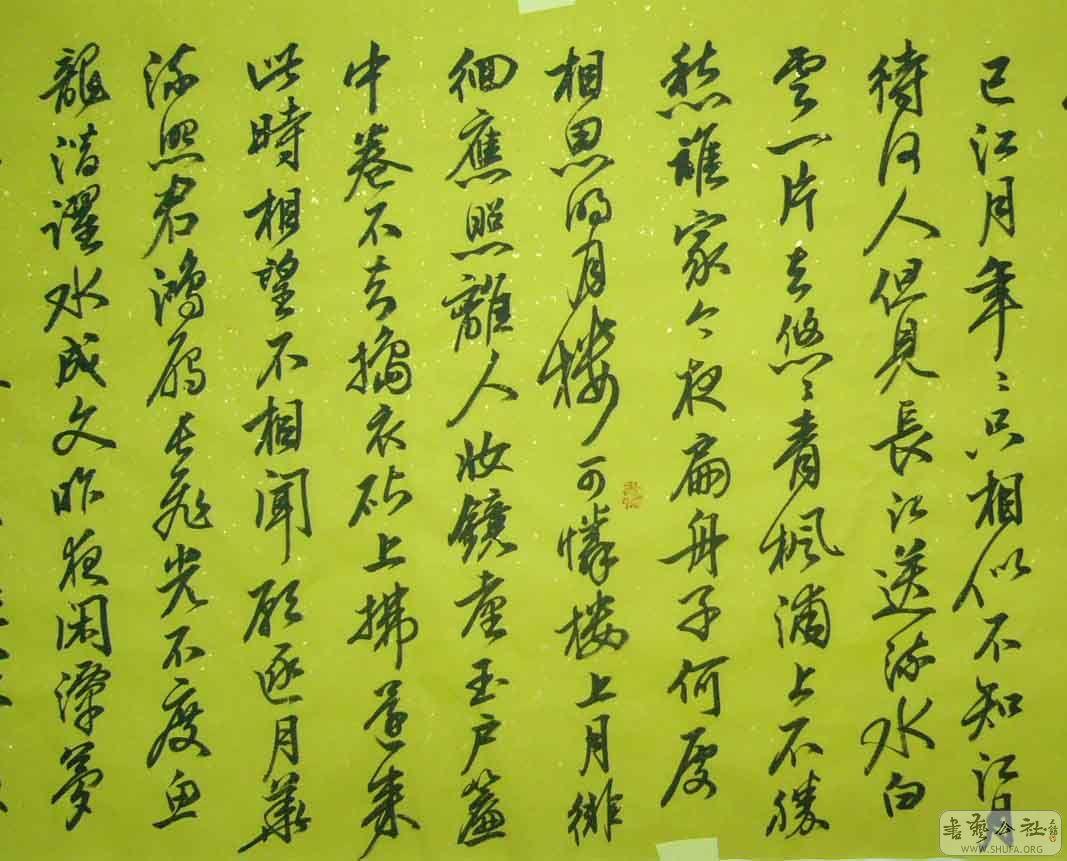 已江月年〻只相似不知江月
待何人但見長江送流水白
雲一片去悠〻青楓浦上不勝
愁誰家今夜扁舟子何處
相思明月樓可憐樓上月徘
徊應照離人妝鏡臺玉戶簾
中卷不去搗衣砧上拂還來
此時相望不相聞願逐月華
流照君鴻雁長飛光不度魚
龍潛躍水成文昨夜閑潭夢
书艺公社
WWW.SHUFA.ORG